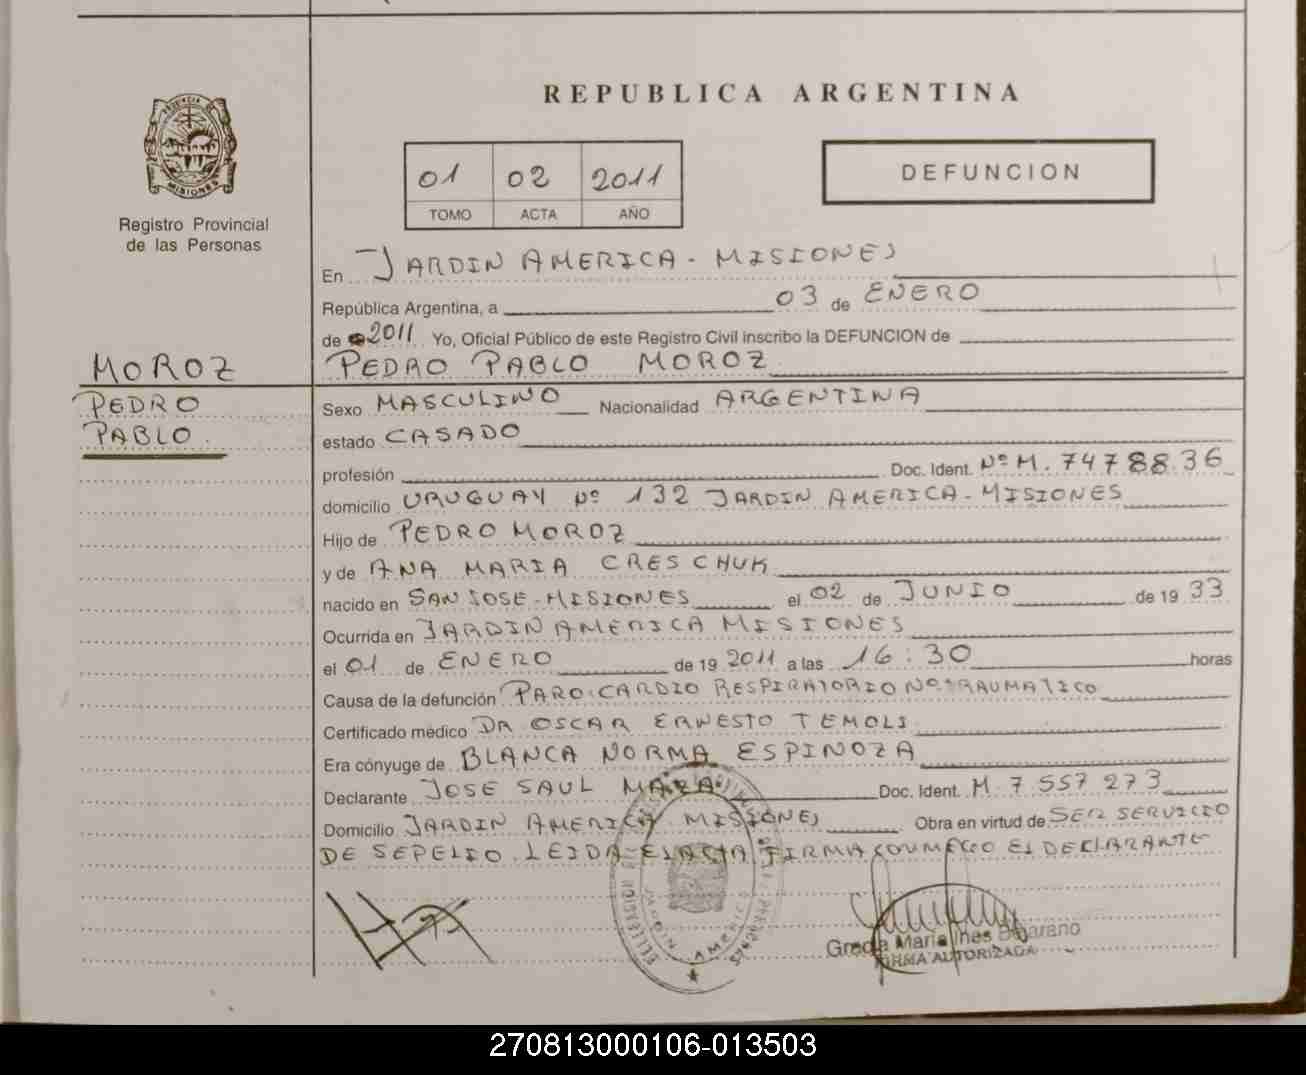 REPUBLICA ARGENTINA
PROVINCIA DE
MISIONES
Registro Provincial
de las Personas
01 02 2011
TOMO ACTA AÑO
DEFUNCION
En JARDIN AMERICA - MISIONES
República Argentina, a 03 de ENERO
de 2011 Yo, Oficial Público de este Registro Civil inscribo la DEFUNCION de
PEDRO PABLO MOROZ
MOROZ
PEDRO
PABLO.
Sexo MASCULINO Nacionalidad ARGENTINA
estado CASADO
profesión Doc. Ident. Nº M. 7478836
domicilio URUGUAY Nº 132 JARDIN AMERICA - MISIONES
Hijo de PEDRO MOROZ
y de ANA MARIA CRESCHUK
nacido en SAN JOSE - MISIONES el 02 de JUNIO de 19 33
Ocurrida en JARDIN AMERICA MISIONES
el 01 de ENERO de 19 2011 a las 16:30 horas
Causa de la defunción PARO CARDIO RESPIRATORIO NO TRAUMATICO
Certificado médico DR OSCAR ERNESTO TEMOLI
Era cónyuge de BLANCA NORMA ESPINOZA
Declarante JOSE SAUL MARA Doc. Ident. M. 7.557 273
Domicilio JARDIN AMERICA MISIONES Obra en virtud de SER SERVICIO
DE SEPELIO. LEIDA EL ACTA FIRMA CONMIGO EL DECLARANTE
JARDIN AMERICA
Maria Ines
FIRMA AUTORIZADA
270813000106-013503